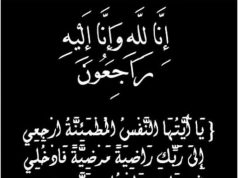 إِنَّا لِلَّهِ وَإِنَّا إِلَيْهِ
رَاجِعُونَ
{ يَا أَيَّتُهَا النَّفْسُ الْمُطْمَئِنَّةُ ارْجِعِي
إِلَىٰ رَبِّكِ رَاضِيَةً مَرْضِيَّةً فَادْخُلِي